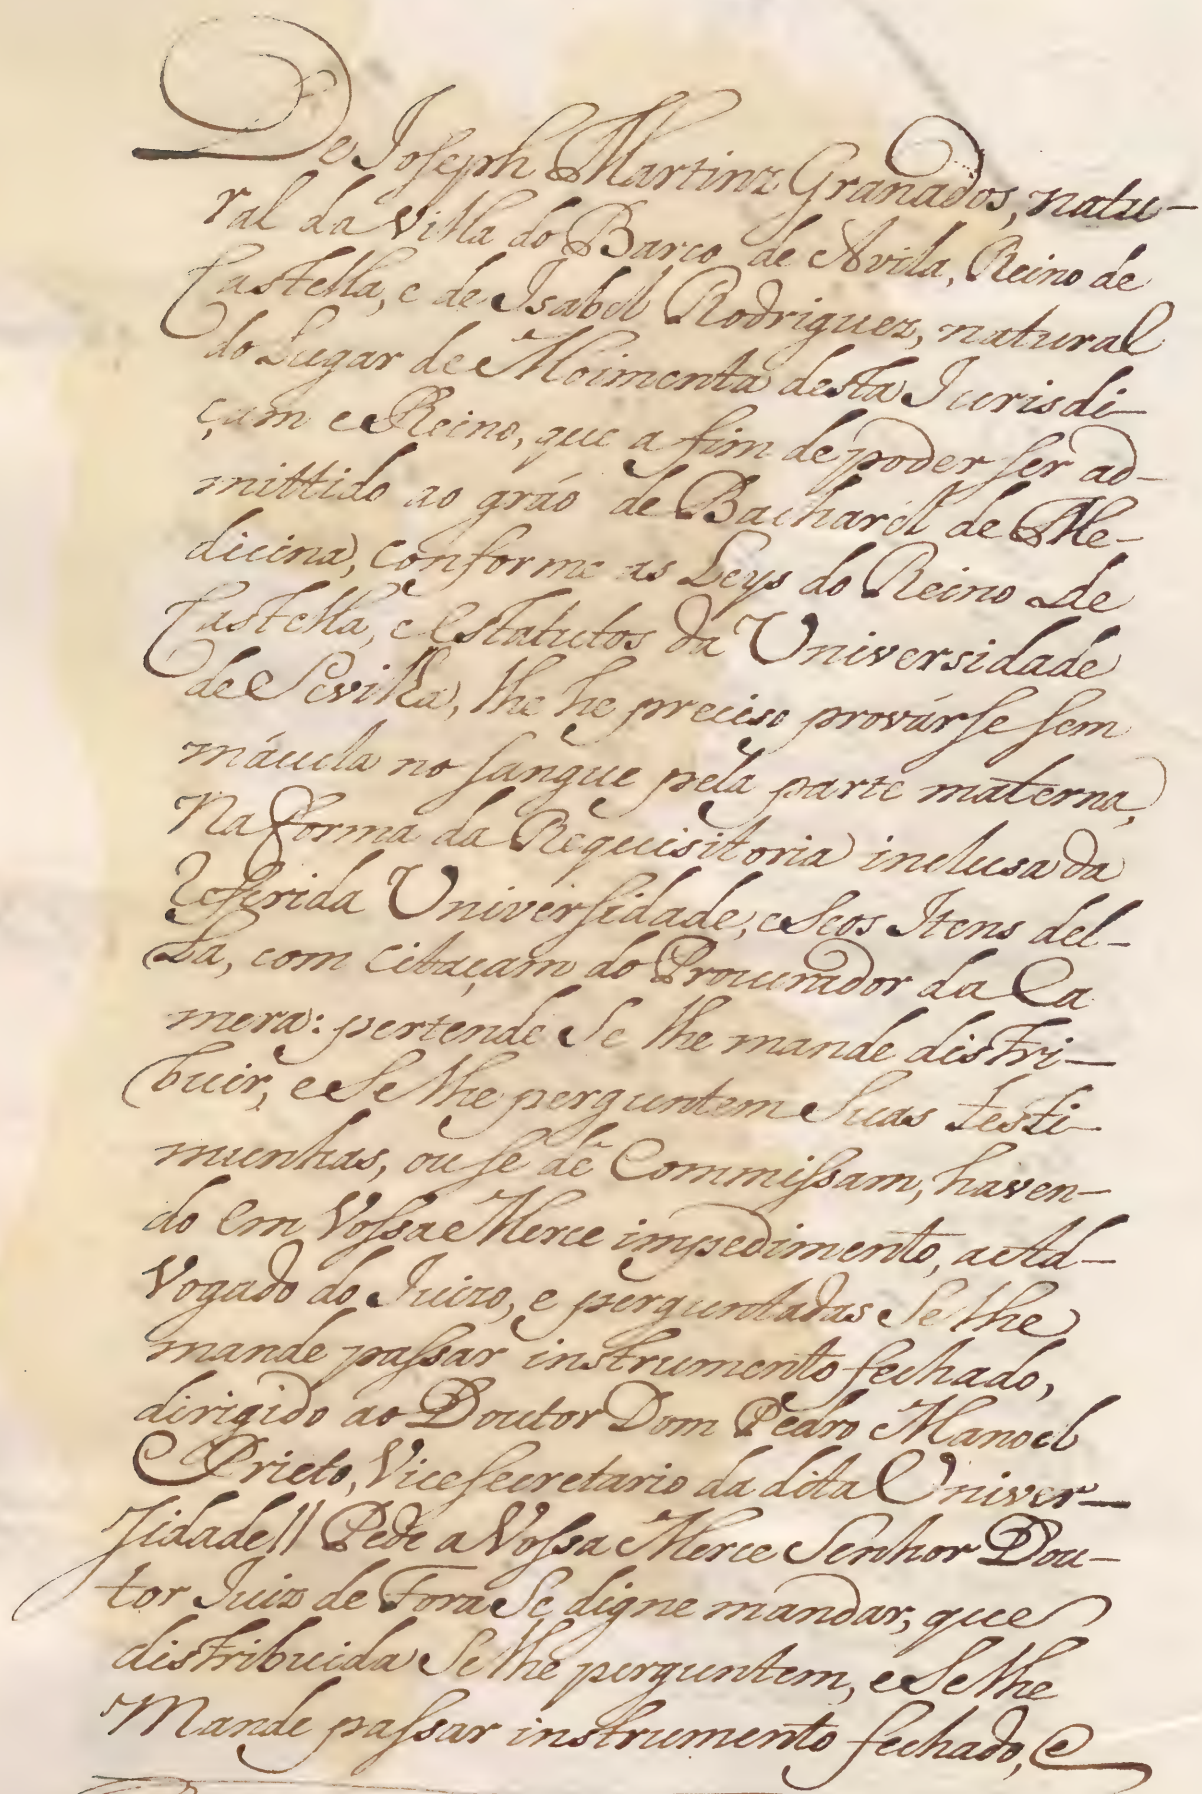 De Joseph Martinz Granados, natu-
ral da Villa do Barco de Avila, Reino de
Castella, e de Isabel Rodriguez, natural
do Lugar de Moimenta desta Jurisdi-
çam e Reino, que a fim de poder ser ad-
mittido ao gráo de Bacharel de Me-
dicina, conforme as Leys do Reino de
Castella, e Estatutos da Universidade
de Sevilla, lhe he preciso provárse sem
mácula no sangue pela parte materna,
Na forma da Requisitoria inclusa da
referida Universidade, e Seos Itens del-
la, com citaçam do Procurador da Ca
mera: pertende Se lhe mande distri-
buir, e Se lhe perguntem Suas testi-
munhas, ou se dê Commissam, haven-
do em Vossa Merce impedimento, a Ad-
vogado do Juizo, e perguntadas Se lhe
mande passar instrumento fechado,
dirigido ao Doutor Dom Pedro Manoel
Prieto, Vicesecretario da dita Univer-
sidade// Pede a Vossa Merce Senhor Dou-
tor Juiz de Fora Se digne mandar, que
distribuida Se lhe perguntem, e Se lhe
Mande passar instrumento fechado, e